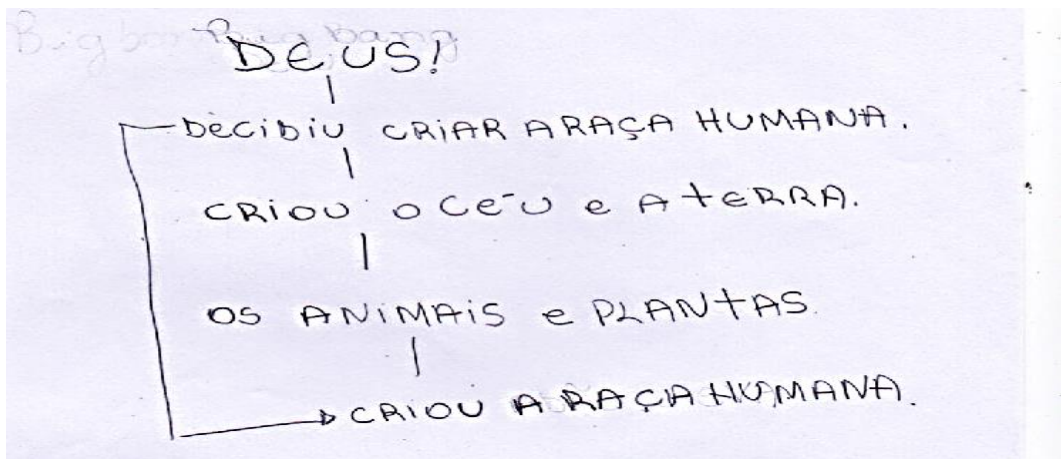 Big bang Big bang
DEUS!
DECIDIU CRIAR A RAÇA HUMANA.
CRIOU O CÉU E A TERRA.
OS ANIMAIS E PLANTAS.
CRIOU A RAÇA HUMANA.